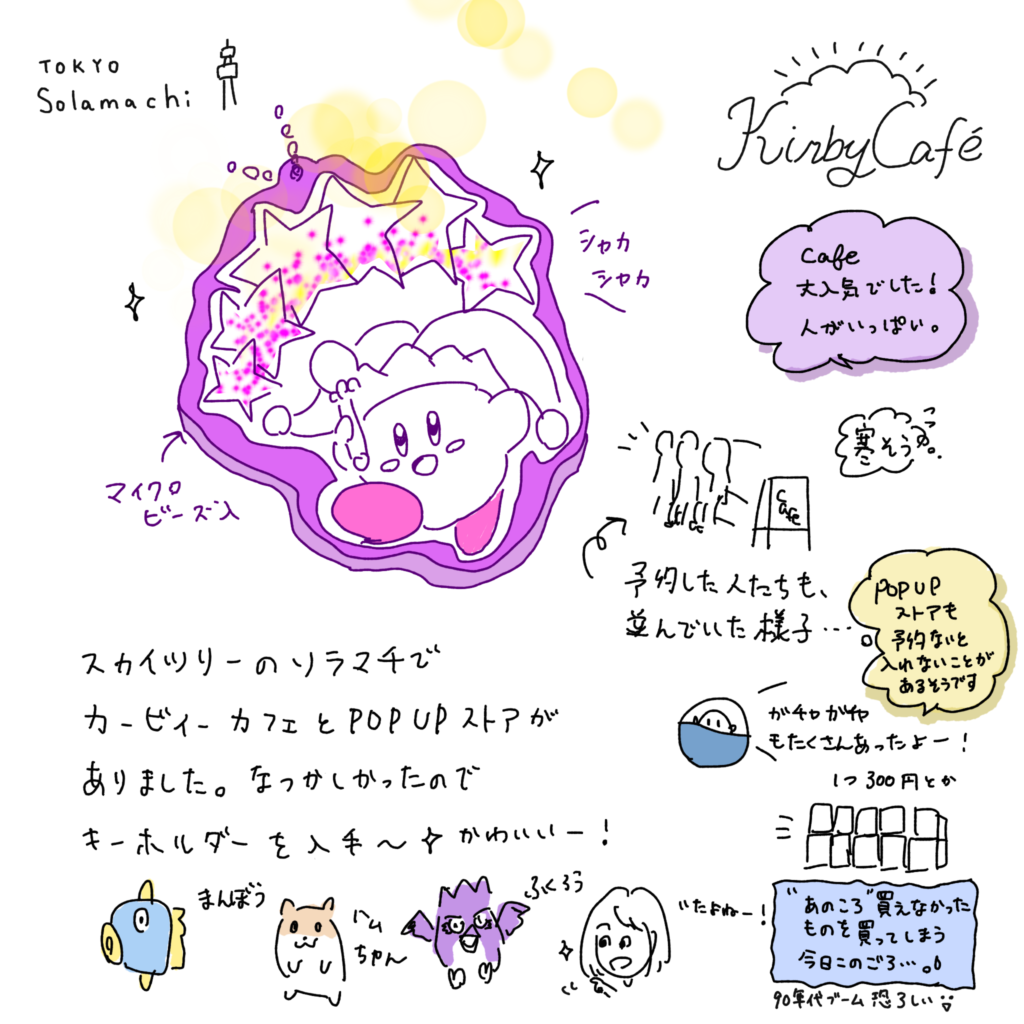 TOKYO
Solamachi
Kirby Café
シャカ
シャカ
cafe
大人気でした!
人がいっぱい。
寒そう。
マイクロ
ビーズ入
Cafe
予約した人たちも、
並んでいた様子…
POP UP
ストアも
予約ないと
入れないことが
あるそうです
スカイツリーのソラマチで
カービィーカフェとPOP UPストアが
ありました。なつかしかったので
キーホルダーを入手〜かわいいー!
ガチャガチャ
もたくさんあったよー!
1つ300円とか
まんぼう
ハム
ちゃん
ふくろう
いたよねー!
"あのころ"買えなかった
ものを買ってしまう
今日このごろ…。
90年代ブーム恐ろしい